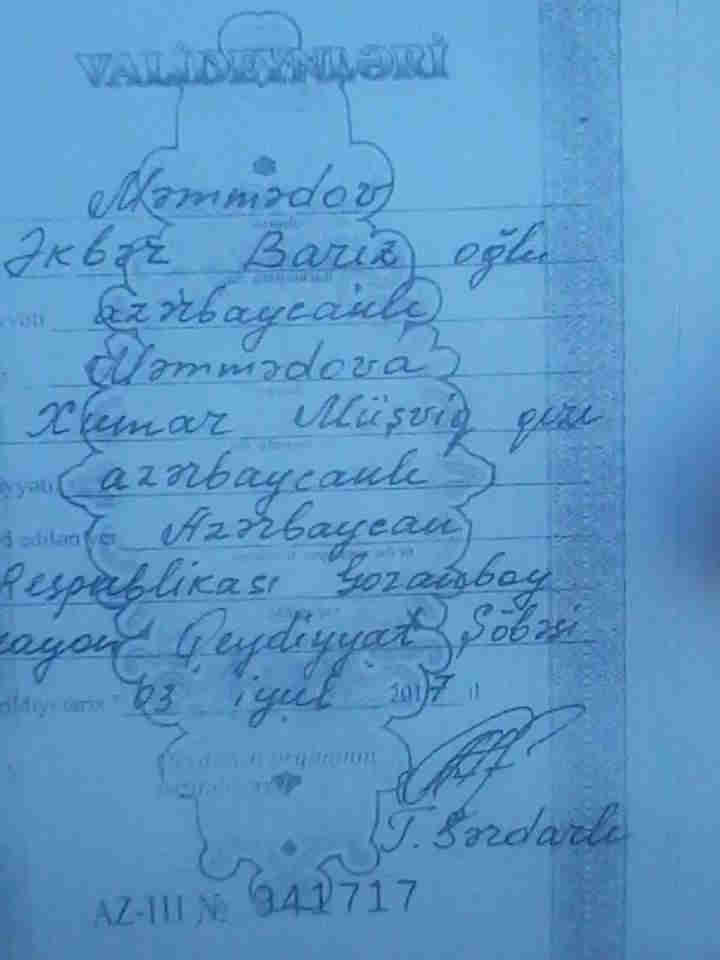 VALİDEYNLƏRİ
Məmmədov
Əkbər Bariz oğlu
azərbaycanlı
Məmmədova
Xumar Müşviq qızı
azərbaycanlı
Azərbaycan
Respublikası Goranboy
rayon Qeydiyyat Şöbəsi
03 iyul 2017 il
T. Sərdarlı
AZ-III № 941717